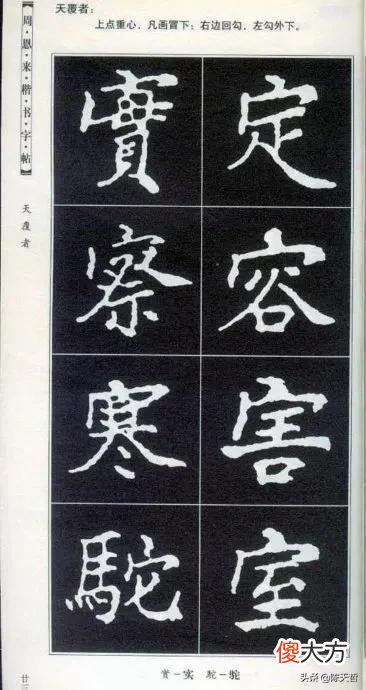 天覆者：
上点重心，凡画冒下；右边回勾，左勾外下。
【周·恩·来·楷·书·字·帖】
天覆者
定
容
害
室
實
察
寒
駝
實－实 駝－
廿三
傻大方
头条 @陈天哲